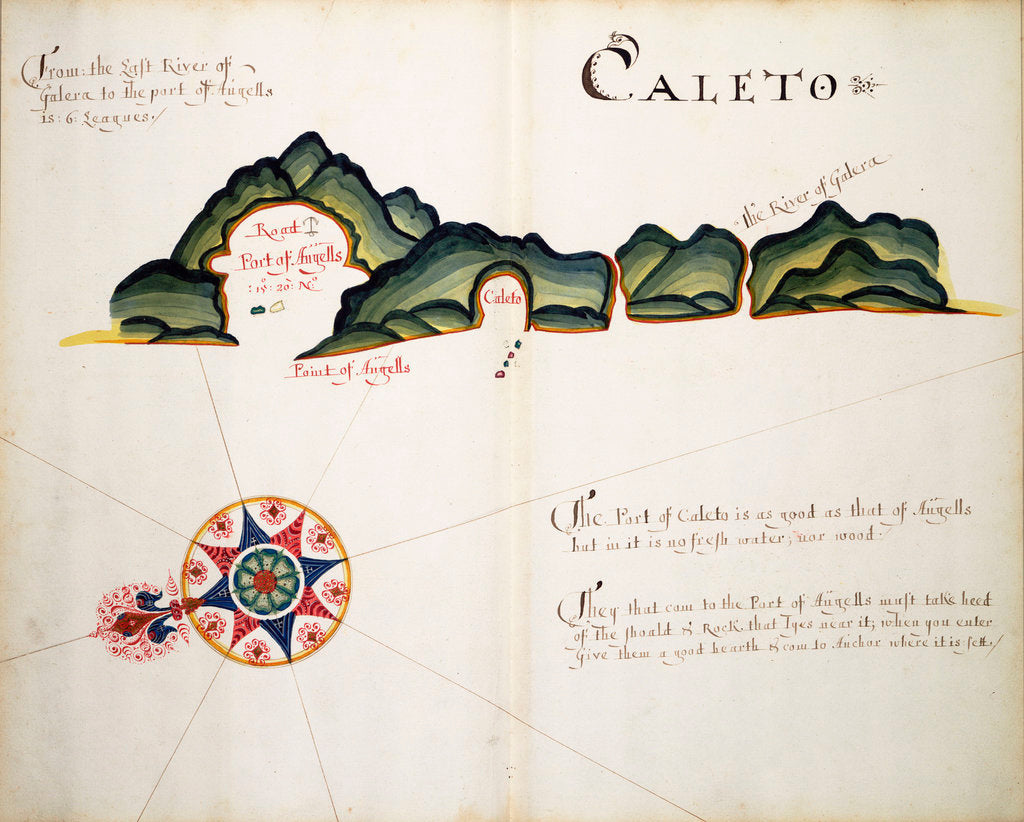 From: the East River of
Galera to the port of Angells
is: 6: Leagues./
CALETO
The River of Galera
Road
Port of Angells
: 15: 20: No
Caleto
Point of Angells
The Port of Caleto is as good as that of Angells
but in it is no fresh water; nor wood.
They that com to the Port of Angells must take heed
of the shoald & Rock that Lyes near it; when you enter
Give them a good bearth & com to Anchor where it is sett,/